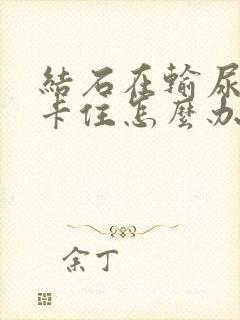 結石在輸尿
卡住怎麼办
余丁